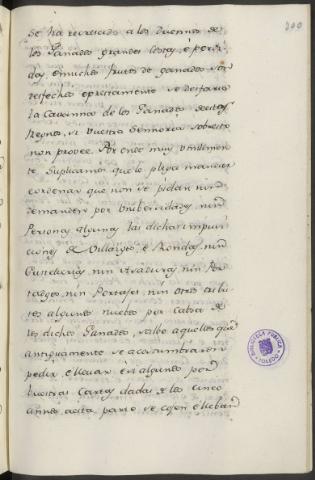 200
se ha recrescido a los Duennos de
los Ganados grandes costas, é perdi
das, é muchos furtos de ganados son
desfechos, é prestamente se desfaria
la Cavanna de los Ganados destos
Reynos, si Vuestra Sennoria sobresto
non provee. Por ende muy umilmen
te Suplicamos que le plega mandar
é ordenar que non se pidan nin
demanden por Universidades, nin
Personas algunas las dichas impusi
ciones de Villazgos, é Rondas, nin
Guardarias, nin Asaduras, nin Por
tazgos, nin Pontajes, nin otros tribu
tos algunos nuevos por cabsa de
los dichos Ganados, salvo aquellos que
antiguamente se acostumbraron
pedir, é llevar en algunos por
vuestras Cartas dadas de los cinco
annos acá, para se cojen é lleban
BIBLIOTECA PUBLICA
TOLEDO